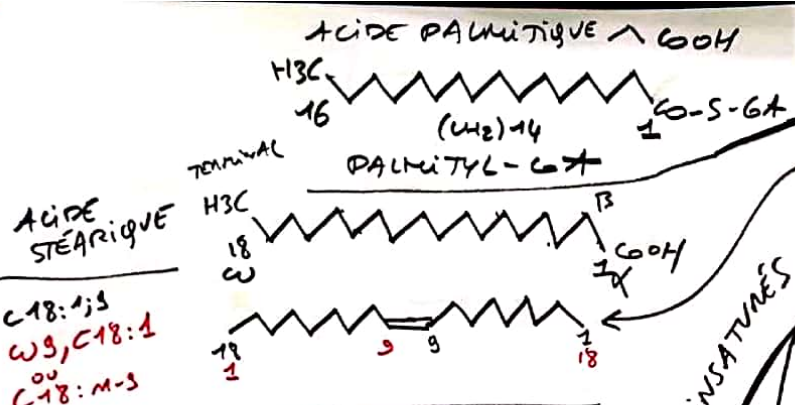 ACIDE PALMITIQUE COOH
H3C
16
(CH2)14
1
CO-S-CoA
TERMINAL
PALMITYL-CoA
ACIDE
STÉARIQUE
H3C
β
18
ω
1
α
COOH
C18:1;9
ω9, C18:1
ou
C18:n-9
18
1
9
9
1
18
INSATURÉS